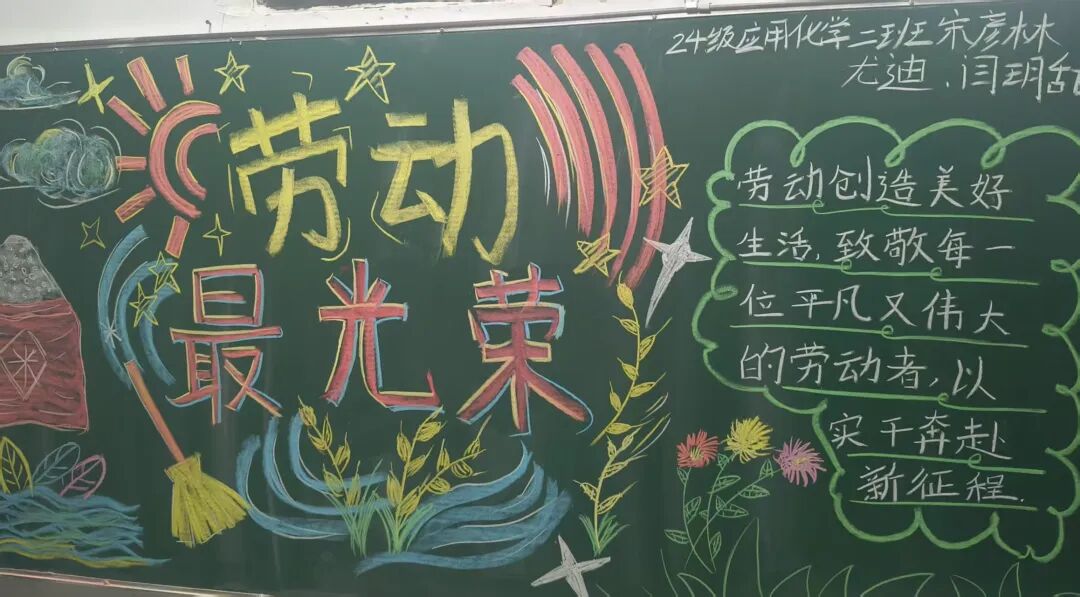 24级应用化学二班宋彦林
尤迪、闫玥
劳动
最光荣
劳动创造美好
生活,致敬每一
位平凡又伟大
的劳动者,以
实干奔赴
新征程.